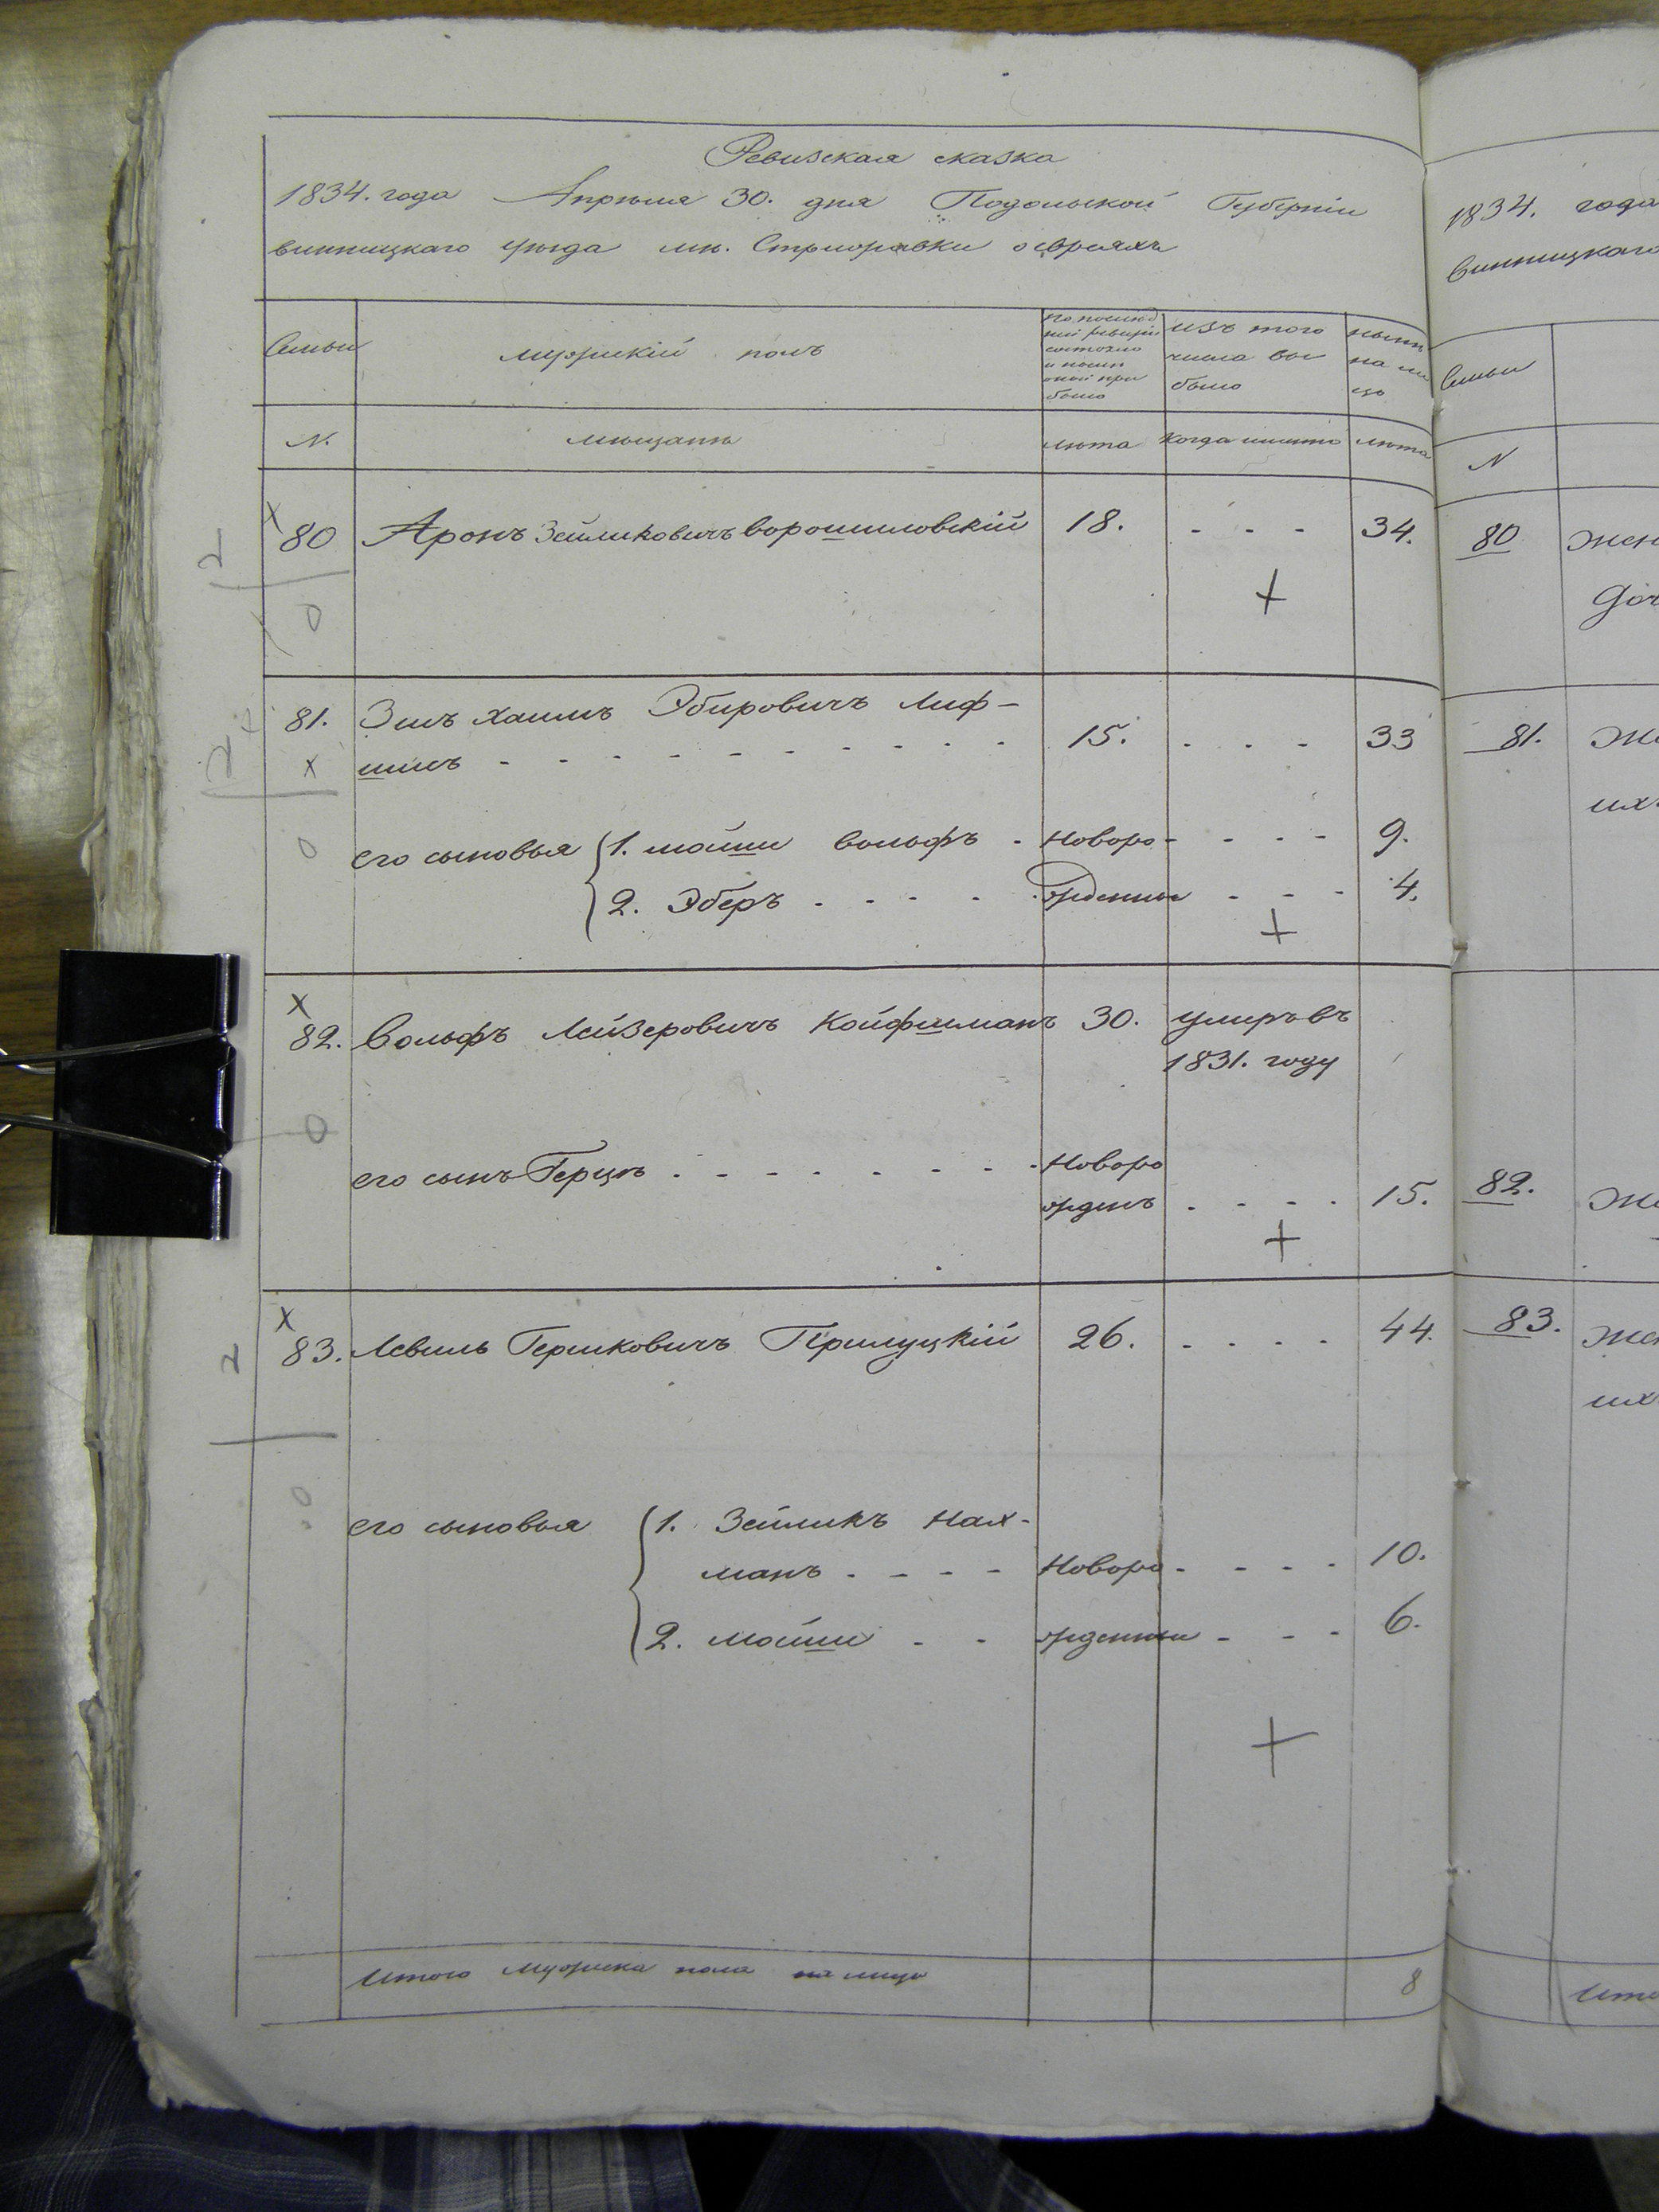 Ревизская сказка
1834. года Апреля 30. дня Подольской Губерніи
винницкаго уѣзда мѣ. Стрыжавки о евреяхъ
Семьи
мужскій полъ
по послѣд
ней ревизіи
состояло
и послѣ
оной при
было
изъ того
числа вы
было
нынѣ
на ли
цо
N.
мѣщанѣ
лѣта
когда именно
лѣта
80 Аронъ Зейликовичъ ворошиловскій 18. - - - 34.
81. Хаимъ Эбировичъ Лиф-
шицъ - - - - - - - - - 15. - - - 33
его сыновья 1. мойши вольфъ - новоро - - - - 9.
2. Эберъ - - - - жденны - - - 4.
82. Вольфъ Лейзеровичъ Койфшманъ 30. умеръ въ
1831. году
его сынъ Герцъ - - - - - - - - новоро
жденъ - - - - 15.
83. Левиль Гершковичъ Прилуцкій 26. - - - - 44.
его сыновья 1. Зейликъ нах-
манъ - - - - новоро - - - - 10.
2. мойши - - жденны - - - 6.
Итого мужеска пола на лицо 8
1834. года
винницкаго
Семьи
N
80
81.
82.
83.